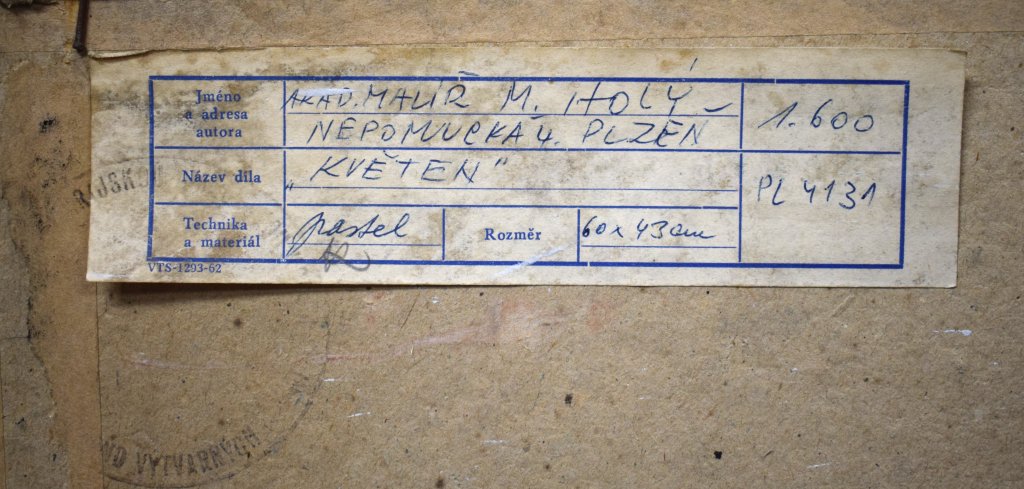 Jméno
a adresa
autora
AKAD. MALÍŘ M. HOLÝ –
NEPOMUCKÁ 4. PLZEŇ
1.600
Název díla
„KVĚTEN“
PL 4131
Technika
a materiál
pastel
Rozměr
60 x 43 cm
VTS-1293-62
VÝTVARNÝCH